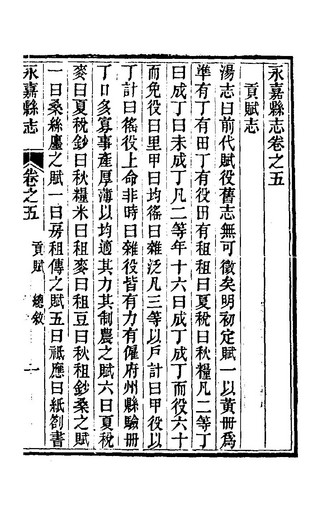 永嘉縣志卷之五
貢賦志
湯志曰前代賦役舊志無可徵矣明初定賦一以黃册爲
準有丁有田丁有役田有租租曰夏稅曰秋糧凡二等丁
曰成丁曰未成丁凡二等年十六曰成丁成丁而役六十
而免役曰里甲曰均徭曰雜泛凡三等以戶計曰甲役以
丁計曰徭役上命非時曰雜役皆有力有僱府州縣驗冊
丁口多寡事產厚薄以均適其力其制農之賦六曰夏稅
麥曰夏稅鈔曰秋糧米曰租麥曰租豆曰秋租鈔桑之賦
一曰桑絲廛之賦一曰房租傳之賦五曰祗應曰紙劄書
永嘉縣志
卷之五
貢賦
總敘
一